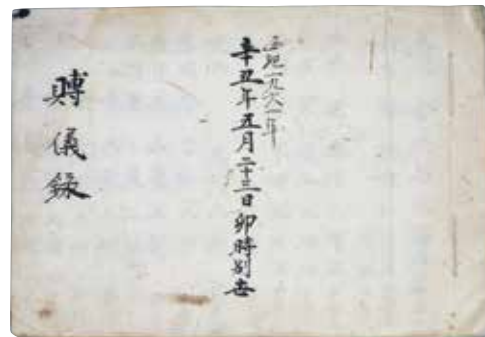 西紀一九六一年
辛丑年五月二十三日卯時別世
賻儀錄